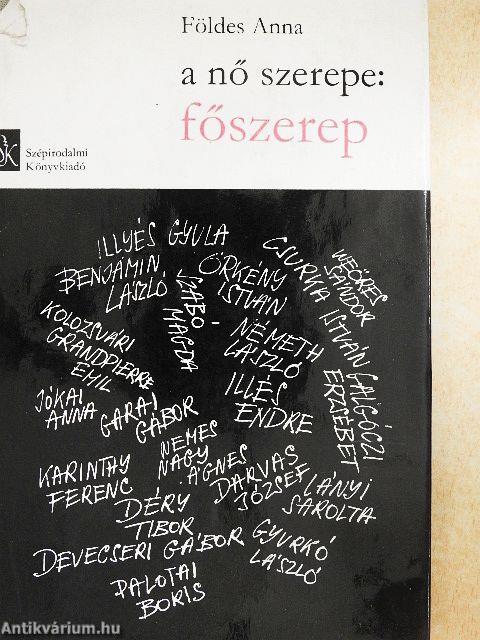 Földes Anna
a nő szerepe:
főszerep
Szépirodalmi
Könyvkiadó
ILLYÉS GYULA
BENJÁMIN
LÁSZLÓ
ÖRKÉNY
ISTVÁN
CSURKA ISTVÁN
WEÖRES
SÁNDOR
SZABÓ
MAGDA
KOLOZSVÁRI
GRANDPIERRE
EMIL
NÉMETH
LÁSZLÓ
GALGÓCZI
ERZSÉBET
JÓKAI
ANNA
GARAI
GÁBOR
ILLÉS
ENDRE
KARINTHY
FERENC
NEMES
NAGY
ÁGNES
DARVAS
JÓZSEF
LÁNYI
SAROLTA
DÉRY
TIBOR
DEVECSERI GÁBOR
GYURKÓ
LÁSZLÓ
PALOTAI
BORIS
Antikvárium.hu